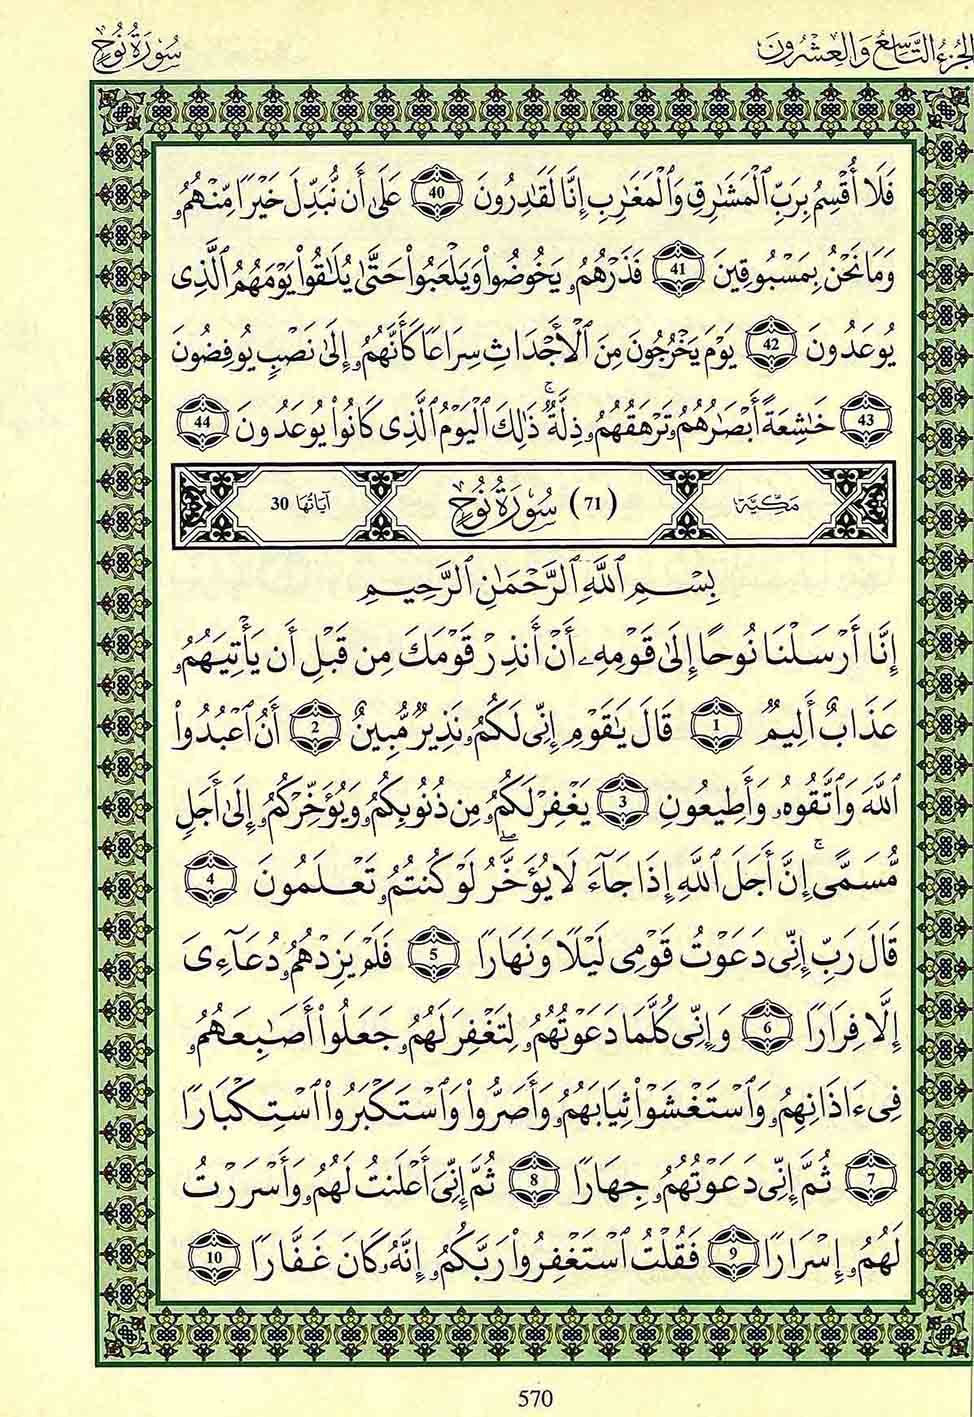 الجزء التاسع والعشرون
سورة نوح
فَلَا أُقْسِمُ بِرَبِّ ٱلْمَشَٰرِقِ وَٱلْمَغَٰرِبِ إِنَّا لَقَٰدِرُونَ 40 عَلَىٰ أَن نُّبَدِّلَ خَيْرًا مِّنْهُمُۥ
وَمَا نَحْنُ بِمَسْبُوقِينَ 41 فَذَرْهُمُۥ يَخُوضُوا۟ وَيَلْعَبُوا۟ حَتَّىٰ يُلَٰقُوا۟ يَوْمَهُمُ ٱلَّذِى
يُوعَدُونَ 42 يَوْمَ يَخْرُجُونَ مِنَ ٱلْأَجْدَاثِ سِرَاعًا كَأَنَّهُمُۥ إِلَىٰ نَصْبٍ يُوفِضُونَ
43 خَٰشِعَةً أَبْصَٰرُهُمُۥ تَرْهَقُهُمُۥ ذِلَّةٌ ۚ ذَٰلِكَ ٱلْيَوْمُ ٱلَّذِى كَانُوا۟ يُوعَدُونَ 44
مَكيَّة (71) سُورَةُ نُوحٍ آيَاتُهَا 30
بِسْمِ ٱللَّهِ ٱلرَّحْمَٰنِ ٱلرَّحِيمِ
إِنَّا أَرْسَلْنَا نُوحًا إِلَىٰ قَوْمِهِۦ أَنْ أَنذِرْ قَوْمَكَ مِن قَبْلِ أَن يَأْتِيَهُمُۥ
عَذَابٌ أَلِيمٌ 1 قَالَ يَٰقَوْمِ إِنِّى لَكُمُۥ نَذِيرٌ مُّبِينٌ 2 أَنُ ٱعْبُدُوا۟
ٱللَّهَ وَٱتَّقُوهُۥ وَأَطِيعُونِ 3 يَغْفِرْ لَكُمُۥ مِن ذُنُوبِكُمُۥ وَيُؤَخِّرْكُمُۥ إِلَىٰ أَجَلٍ
مُّسَمًّى ۚ إِنَّ أَجَلَ ٱللَّهِ إِذَا جَآءَ لَا يُؤَخَّرُ ۖ لَوْ كُنتُمُۥ تَعْلَمُونَ 4
قَالَ رَبِّ إِنِّى دَعَوْتُ قَوْمِى لَيْلًا وَنَهَارًا 5 فَلَمْ يَزِدْهُمُۥ دُعَآءِىَ
إِلَّا فِرَارًا 6 وَإِنِّى كُلَّمَا دَعَوْتُهُمُۥ لِتَغْفِرَ لَهُمُۥ جَعَلُوا۟ أَصَٰبِعَهُمُۥ
فِى ءَاذَانِهِمُۥ وَٱسْتَغْشَوْا۟ ثِيَابَهُمُۥ وَأَصَرُّوا۟ وَٱسْتَكْبَرُوا۟ ٱسْتِكْبَارًا
7 ثُمَّ إِنِّى دَعَوْتُهُمُۥ جِهَارًا 8 ثُمَّ إِنِّىَ أَعْلَنتُ لَهُمُۥ وَأَسْرَرْتُ
لَهُمُۥ إِسْرَارًا 9 فَقُلْتُ ٱسْتَغْفِرُوا۟ رَبَّكُمُۥ إِنَّهُۥ كَانَ غَفَّارًا 10
570